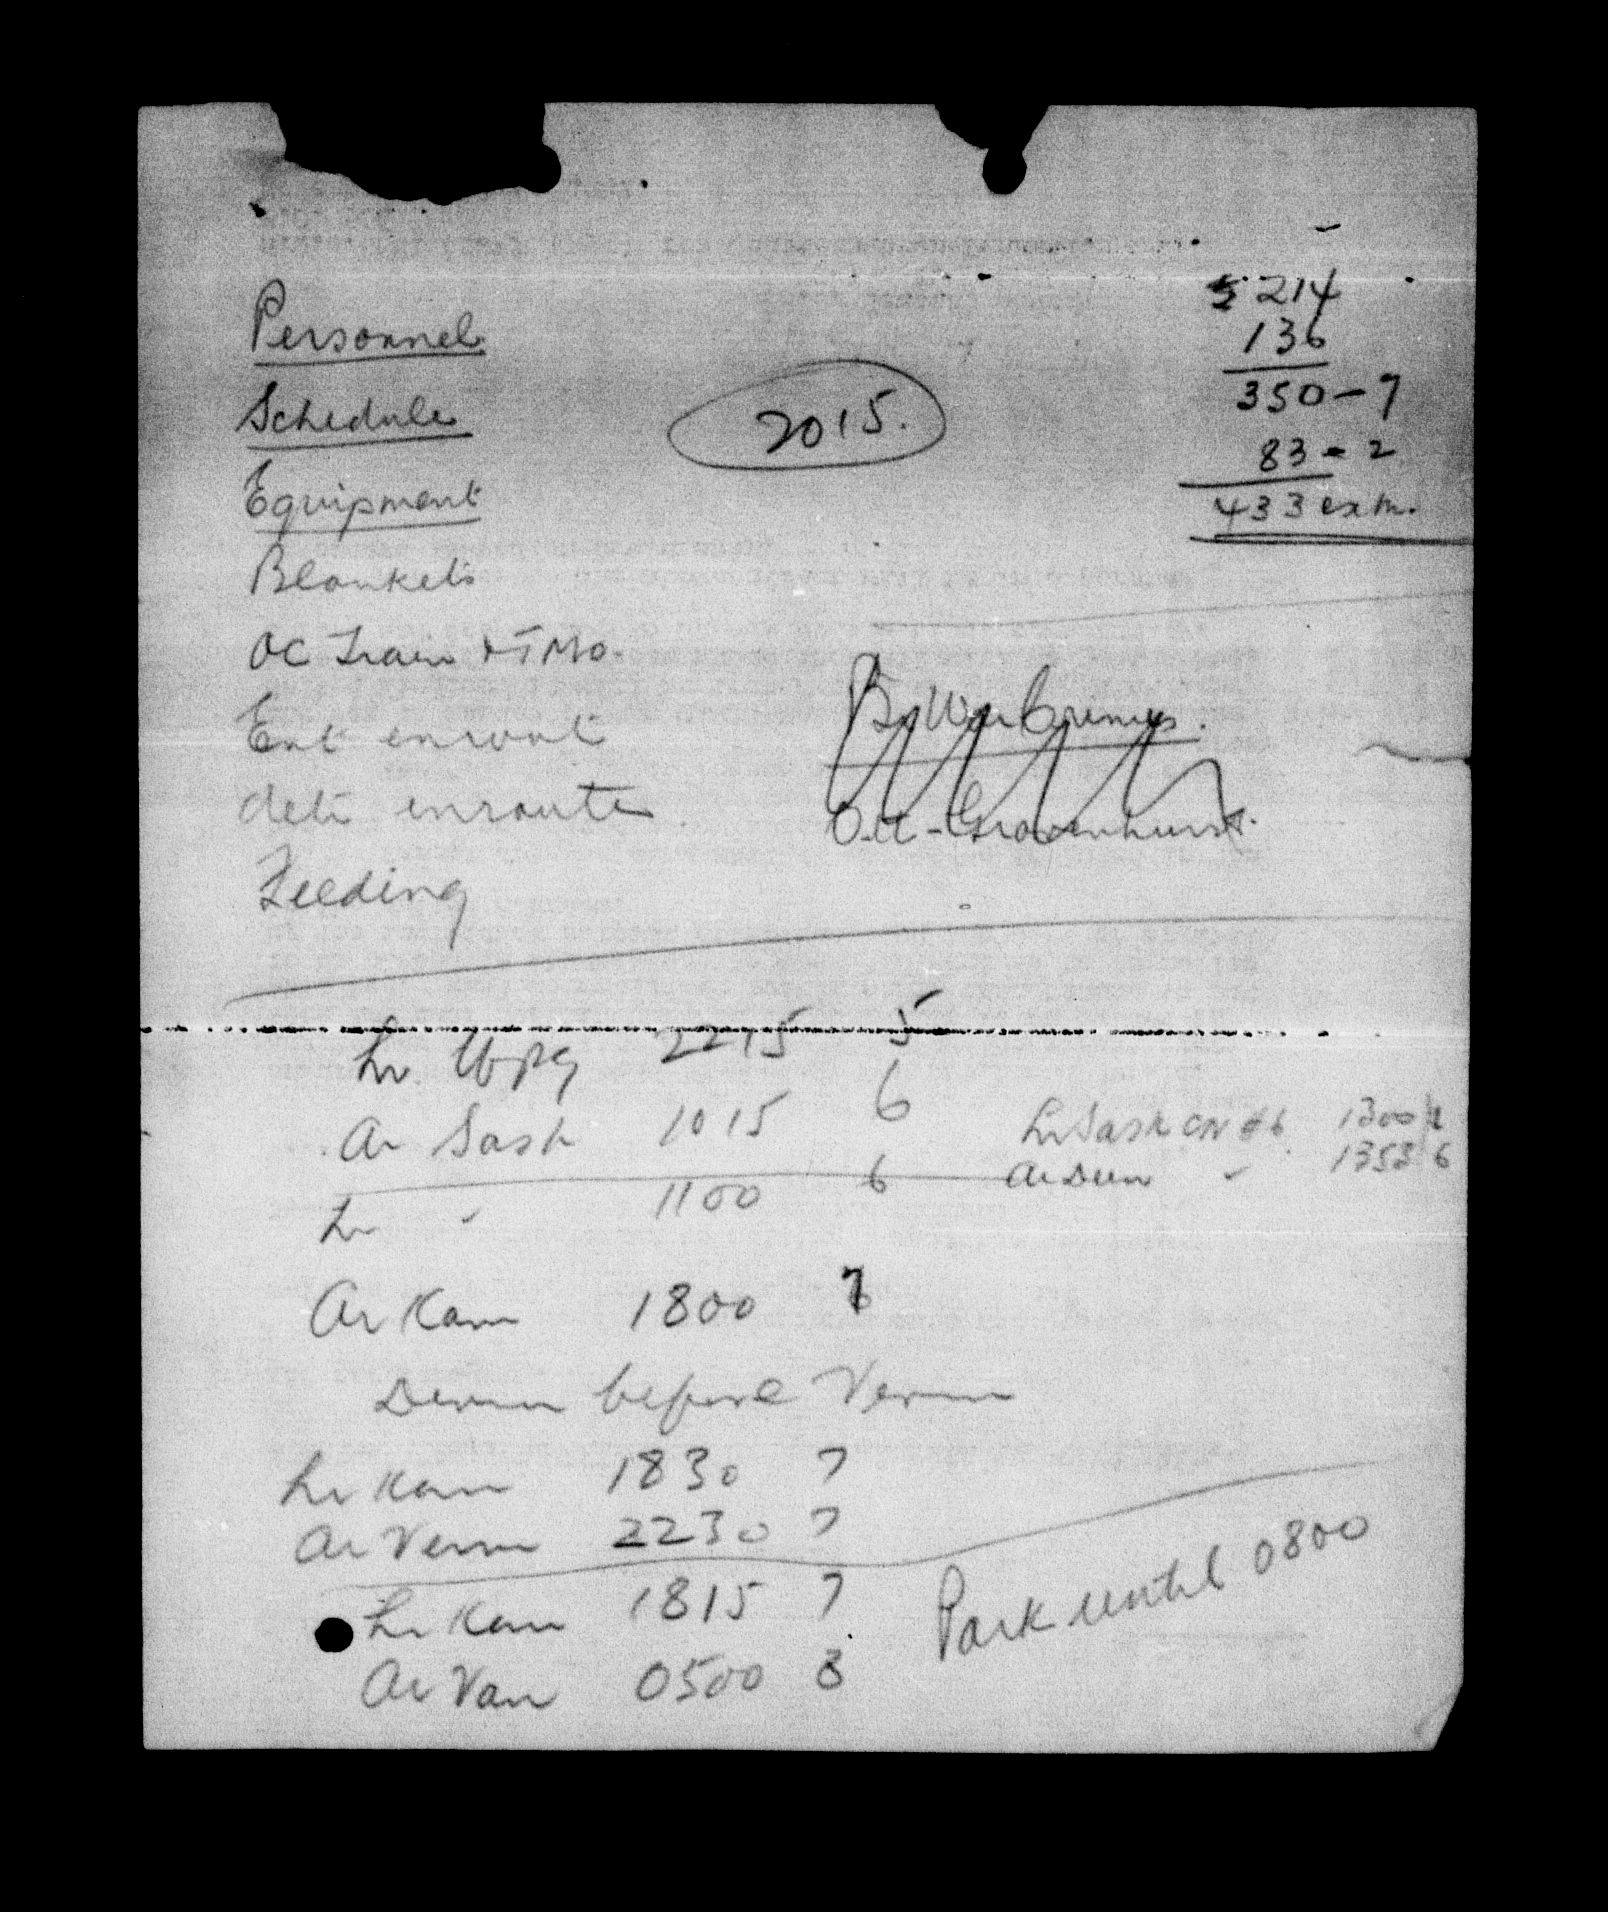 Personnel
Schedule
Equipment
Blankets
OC Train & TMO.
Ent enrout
detr enroute
Feeding
2015.
214
136
350 - 7
83 - 2
433
Lv. Wpg 2215 5
Ar Sask 1015 6
Lv " 1100 6
Lv Sask CN 1300 6
Ar Dun " 1353 6
Ar Kam 1800 7
before Vern
Lv Kam 1830 7
Ar Vern 2230 7
Lv Kam 1815 7
Ar Van 0500 8
Park until 0800